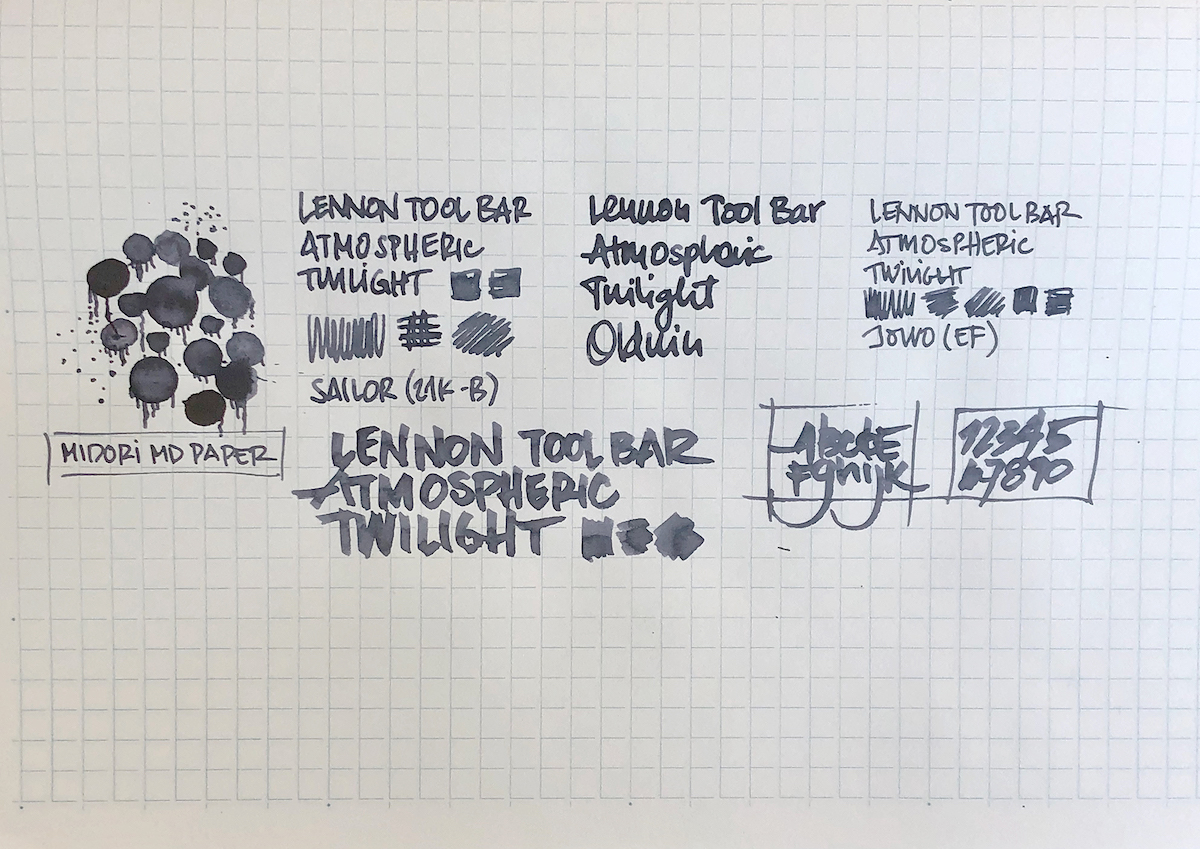 LENNON TOOL BAR
ATMOSPHERIC
TWILIGHT
SAILOR (21K-B)
Lennon Tool Bar
Atmospheric
Twilight
LENNON TOOL BAR
ATMOSPHERIC
TWILIGHT
JOWO (EF)
MIDORI MD PAPER
LENNON TOOL BAR
ATMOSPHERIC
TWILIGHT
12345
67890